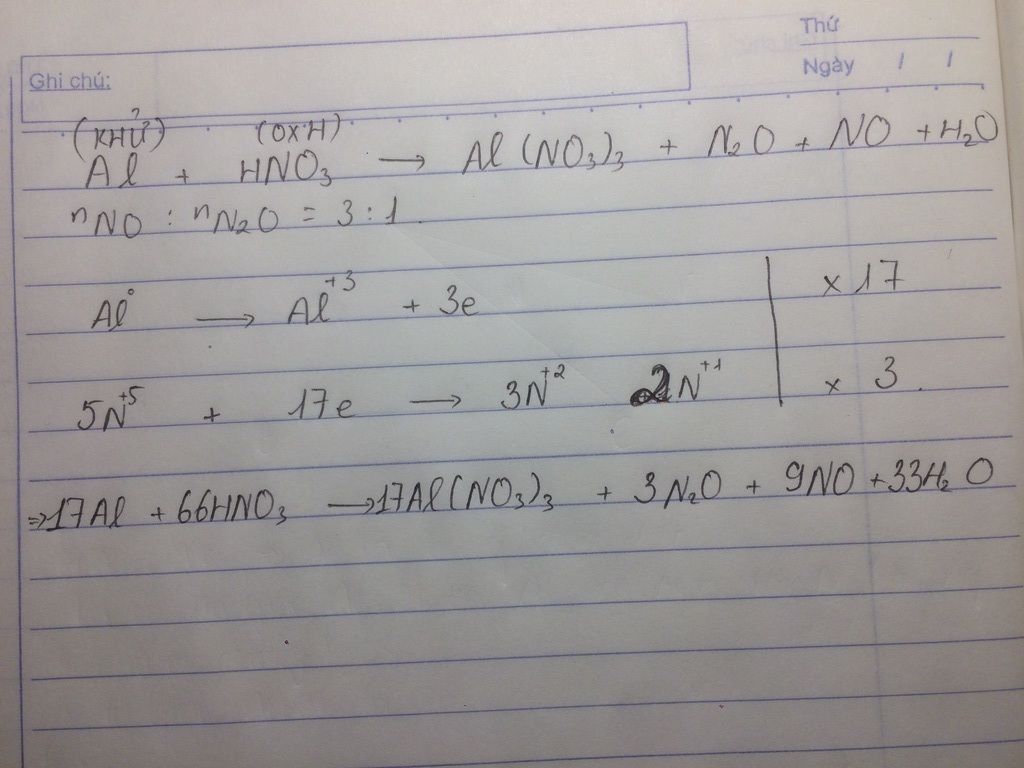 Thứ
Ghi chú:
Ngày / /
(KHỬ) (OXH)
Al + HNO₃ → Al(NO₃)₃ + N₂O + NO + H₂O
nNO : nN₂O = 3 : 1.
Al⁰ → Al⁺³ + 3e | x 17
5N⁺⁵ + 17e → 3N⁺² 2N⁺¹ | x 3.
⇒ 17Al + 66HNO₃ → 17Al(NO₃)₃ + 3N₂O + 9NO + 33H₂O